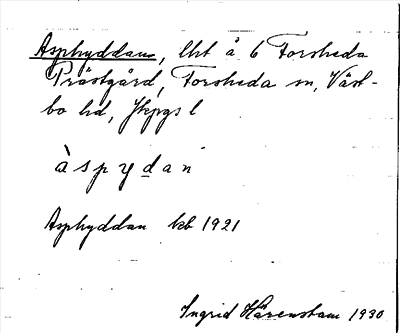 Asphyddan, lht å 6 Forsheda
Prästgård, Forsheda sn, Väst-
bo hd, Jkpgs l
àspydan
Asphyddan kb 1921
Ingrid Hårenstam 1930